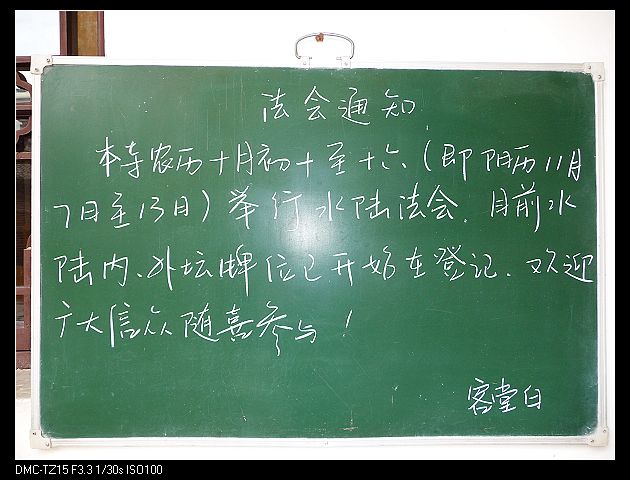 法会通知
本寺农历十月初十至十六(即阳历11月
7日至13日)举行水陆法会.目前水
陆内、外坛牌位已开始在登记.欢迎
广大信众随喜参与!
客堂白
DMC-TZ15 F3.3 1/30s ISO100